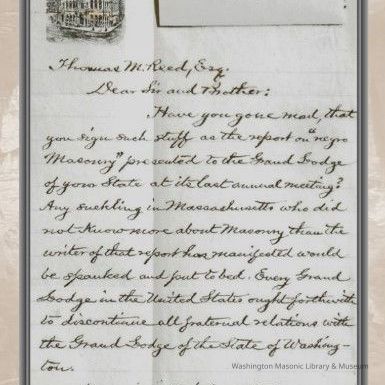 Thomas M. Reed, Esq.
Dear Sir and Brother:
Have you gone mad, that
you sign such stuff as the report on "negro
Masonry" presented to the Grand Lodge
of your State at its last annual meeting?
Any suckling in Massachusetts who did
not know more about Masonry than the
writer of that report has manifested would
be spanked and put to bed. Every Grand
Lodge in the United States ought forthwith
to discontinue all fraternal relations with
the Grand Lodge of the State of Washing-
ton.
Washington Masonic Library & Museum